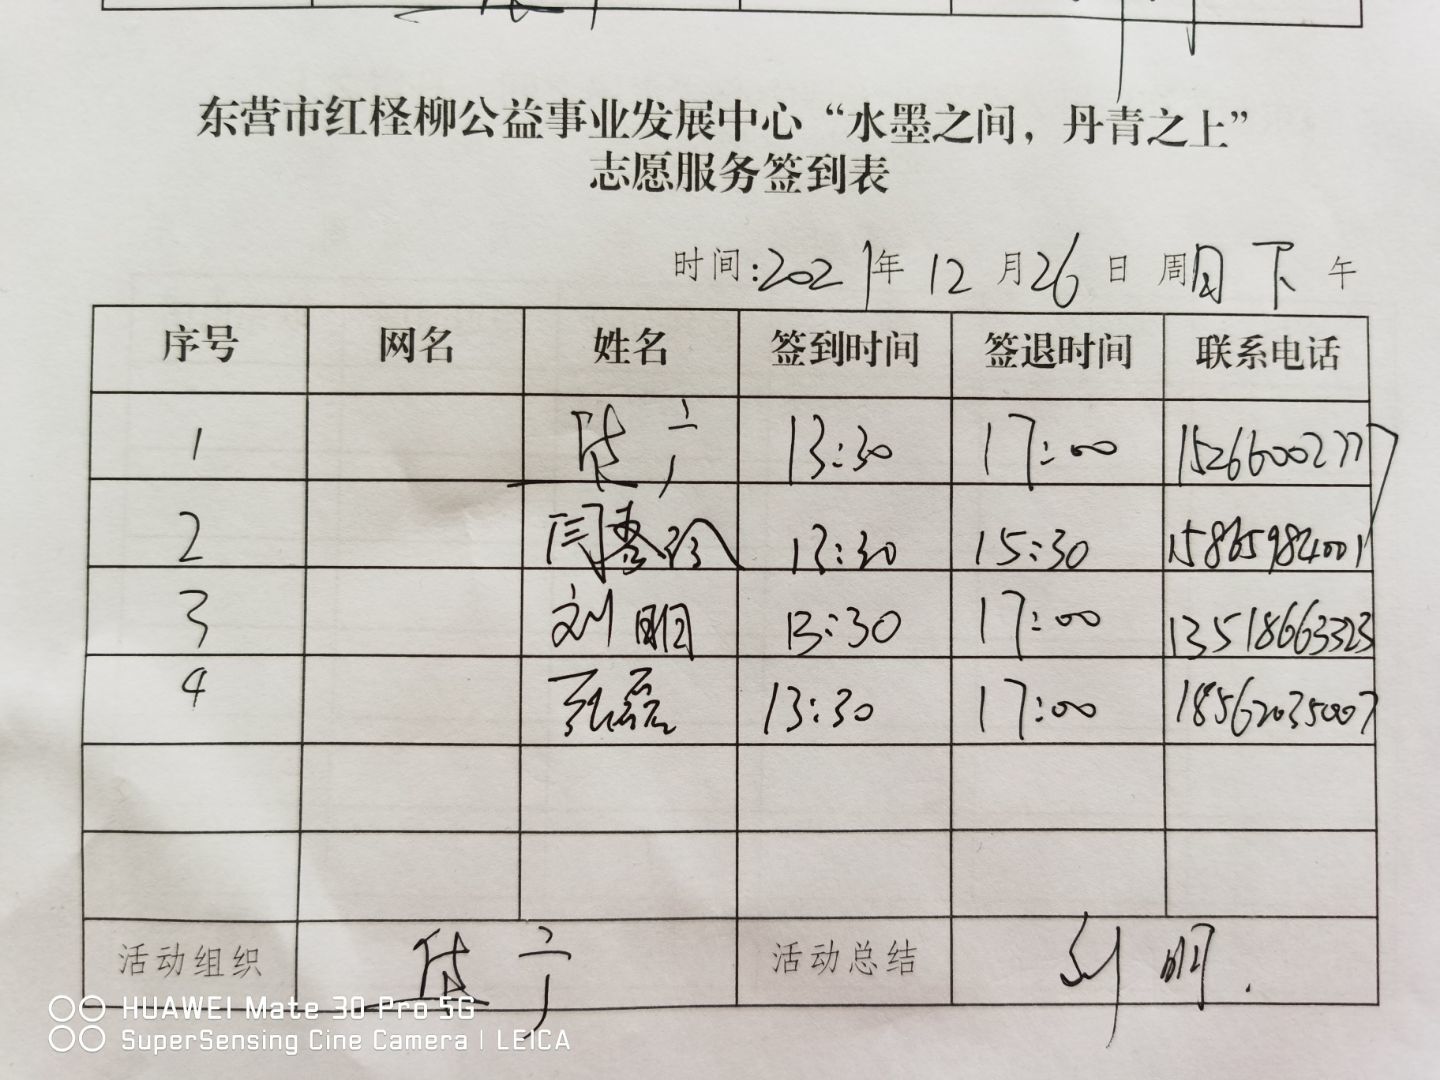 东营市红柽柳公益事业发展中心“水墨之间，丹青之上”
志愿服务签到表
时间:2021年 12 月 26 日 周日 下 午
序号 网名 姓名 签到时间 签退时间 联系电话
1 13:30 17:00 15266002777
2 闫 13:30 15:30 15865984001
3 刘明 13:30 17:00 13518663323
4 张磊 13:30 17:00 18562035007
活动组织 活动总结 刘明.
HUAWEI Mate 30 Pro 5G
SuperSensing Cine Camera | LEICA